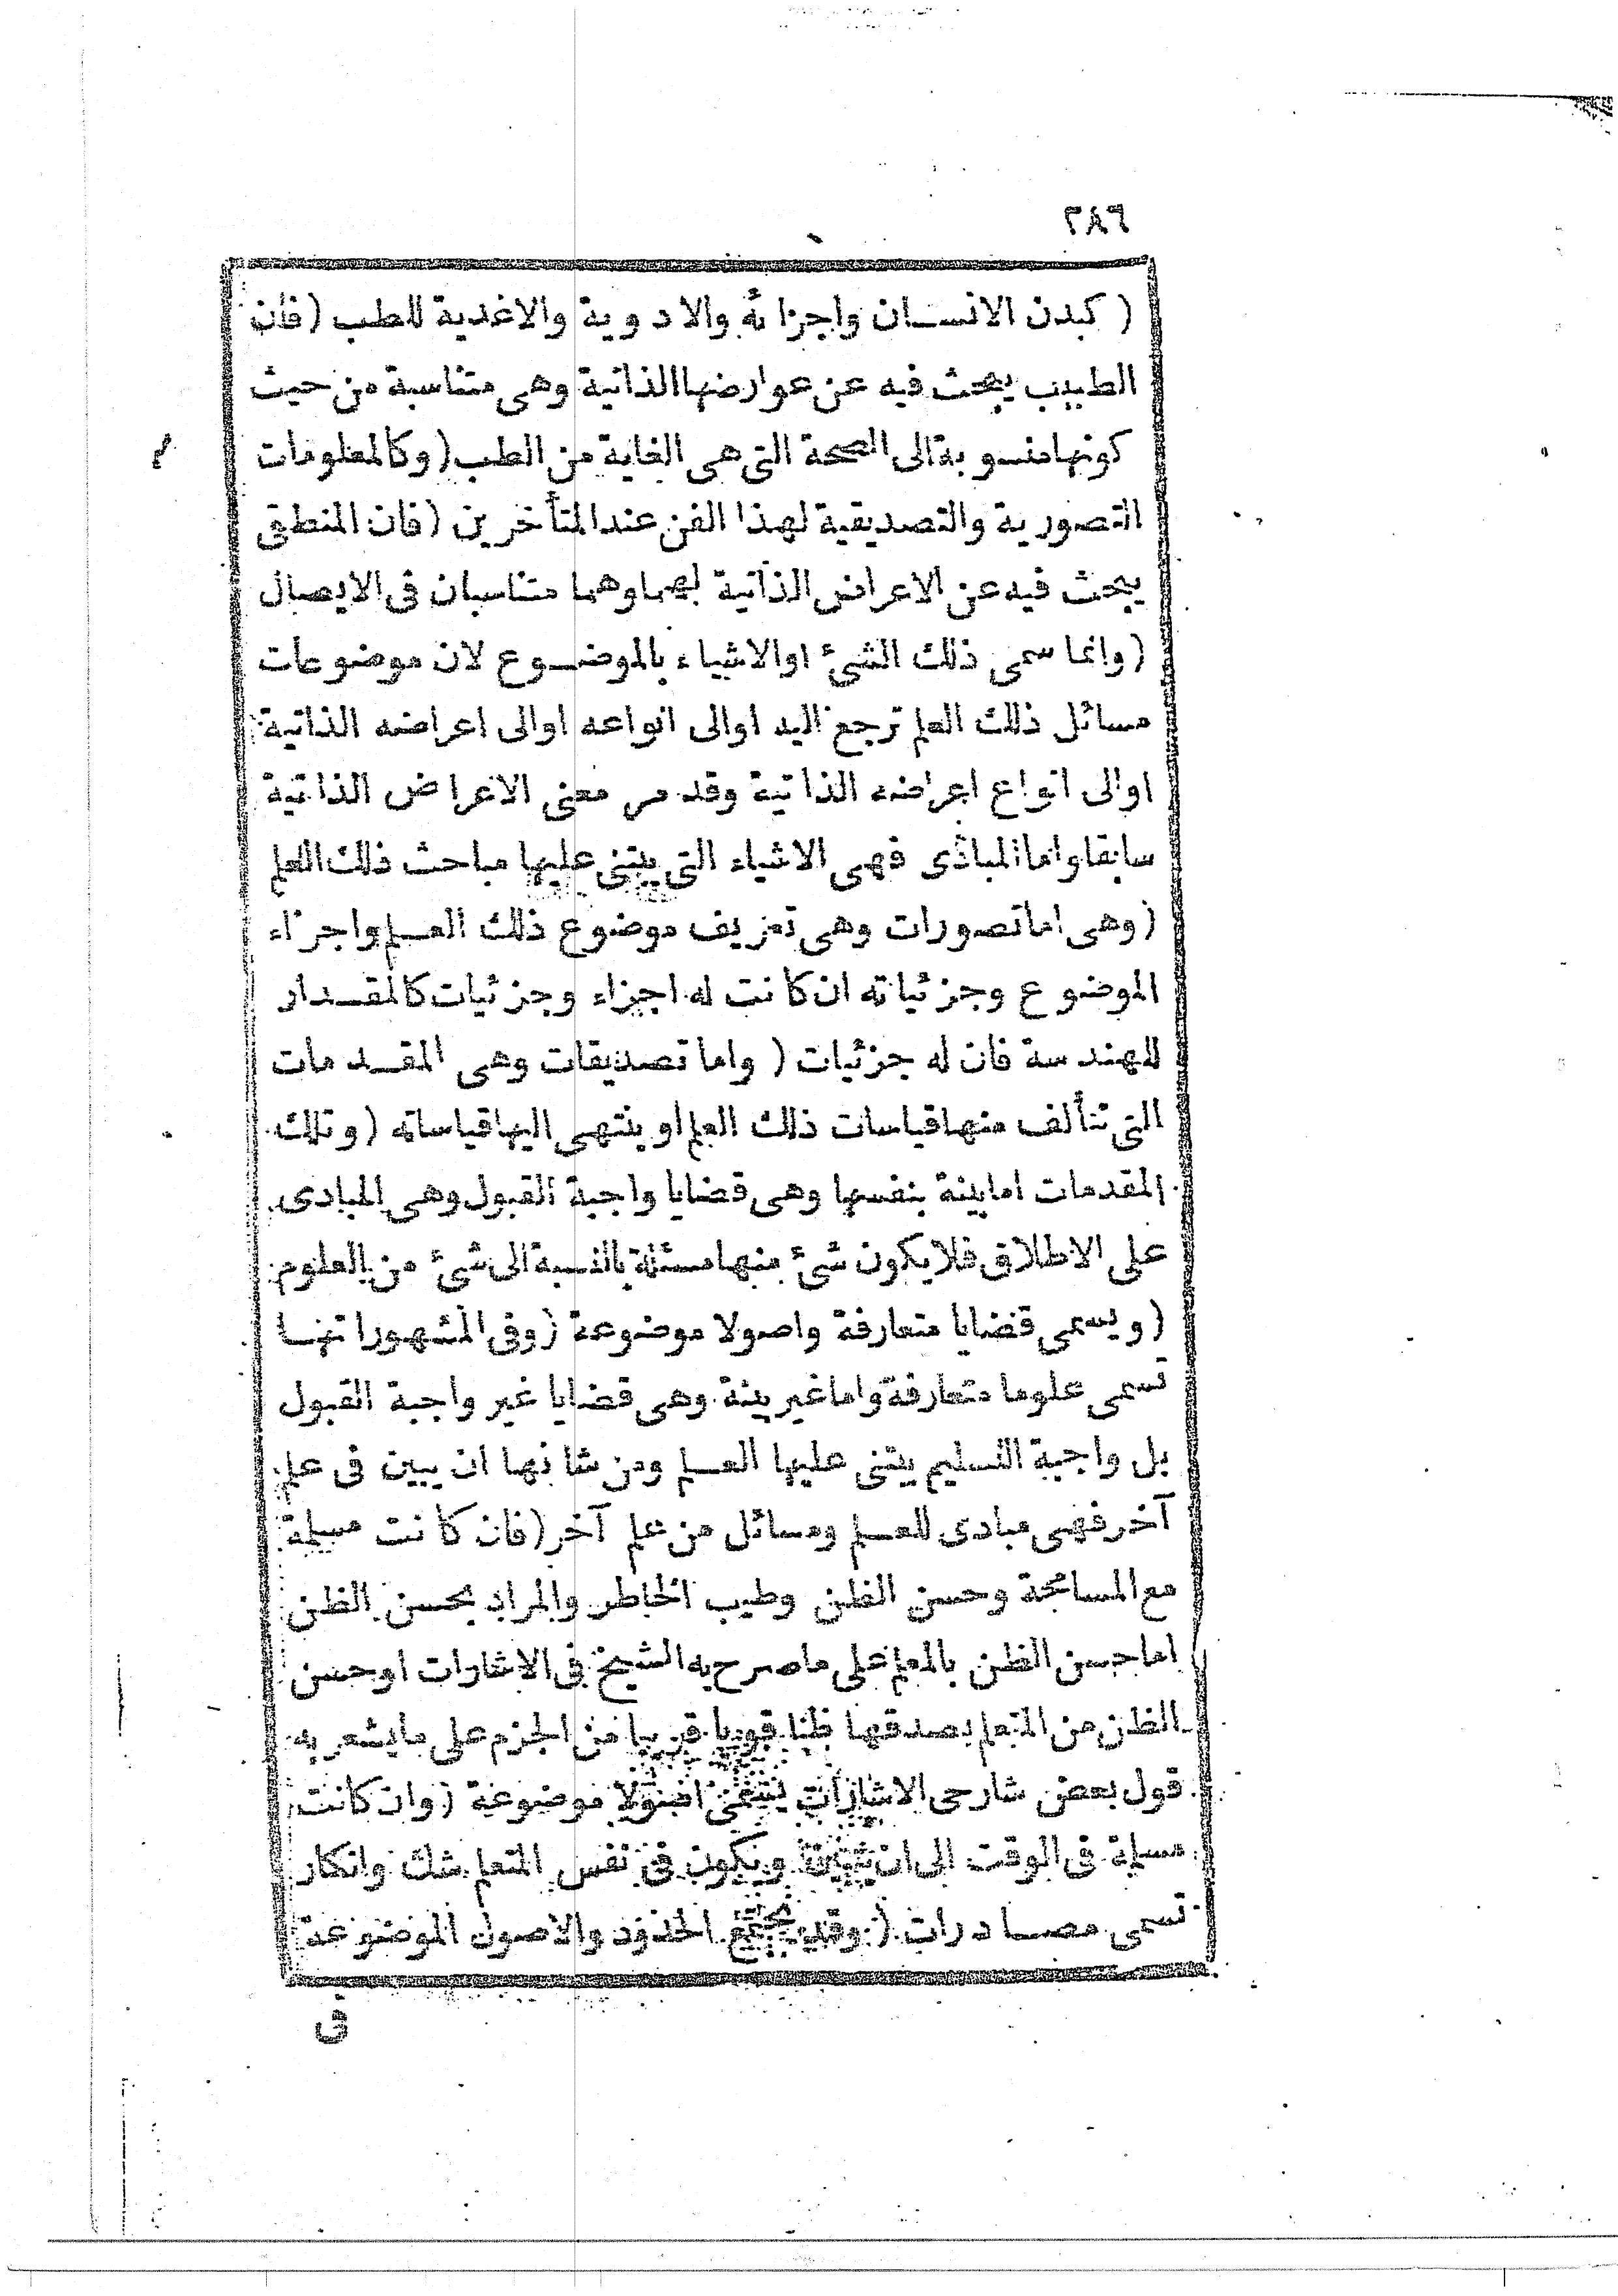 ٢٨٦
( كبدن الانسان واجزائه والادوية والاغذية للطب ( فان
الطبيب يبحث فيه عن عوارضها الذاتية وهى متناسبة من حيث
كونها منسوبة الى الصحة التى هى الغاية من الطب ( وكالمعلومات
التصورية والتصديقية لهذا الفن عند المتأخرين ( فان المنطقى
يبحث فيه عن الاعراض الذاتية لهما وهما متناسبان فى الايصال
( وانما سمى ذلك الشئ او الاشياء بالموضوع لان موضوعات
مسائل ذلك العلم ترجع اليه او الى انواعه او الى اعراضه الذاتية
او الى انواع اعراضه الذاتية وقد مر معنى الاعراض الذاتية
سابقا واما المبادى فهى الاشياء التى يبتنى عليها مباحث ذلك العلم
( وهى اما تصورات وهى تعريف موضوع ذلك العلم واجزاء
الموضوع وجزئياته ان كانت له اجزاء وجزئيات كالمقدار
للهندسة فان له جزئيات ( واما تصديقات وهى المقدمات
التى تتألف منها قياسات ذلك العلم او ينتهى اليها قياساته ( وتلك
المقدمات اما بينة بنفسها وهى قضايا واجبة القبول وهى المبادى
على الاطلاق فلا يكون شئ منها مسئلة بالنسبة الى شئ من العلوم
( ويسمى قضايا متعارفة واصولا موضوعة ( وفى المشهور انها
تسمى علوما متعارفة واما غير بينة وهى قضايا غير واجبة القبول
بل واجبة التسليم يبتنى عليها العلم ومن شانها ان يبين فى علم
آخر فهى مبادى للعلم ومسائل من علم آخر ( فان كانت مسلمة
مع المسامحة وحسن الظن وطيب الخاطر والمراد بحسن الظن
اما حسن الظن بالمعلم على ما صرح به الشيخ فى الاشارات او حسن
الظن من المتعلم بصدقها ظنا قويا قريبا من الجزم على ما يشعر به
قول بعض شارحى الاشارات يسمى اصولا موضوعة ( وان كانت
مسلمة فى الوقت الى ان ويكون فى نفس المتعلم شك وانكار
تسمى مصادرات ( وقد يجتمع الحدود والاصول الموضوعة
فى